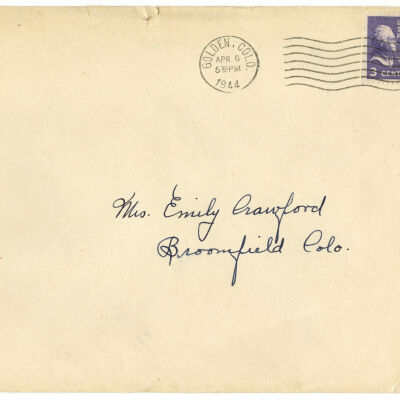 GOLDEN, COLO.
APR 6
5 PM
1944
3 CENT
Mrs. Emily Crawford
Broomfield Colo.